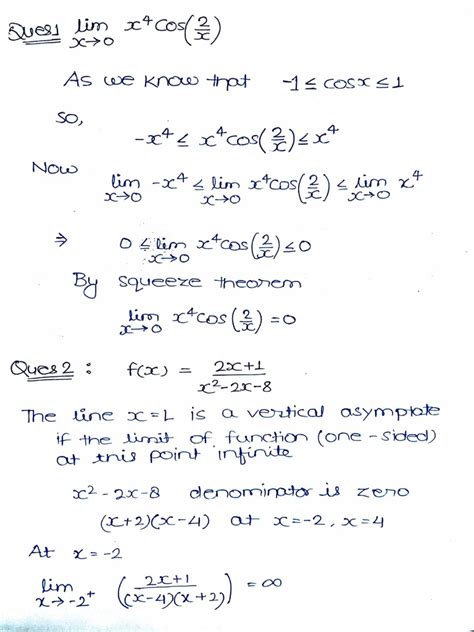 Ques1 lim x→0 x⁴cos(2/x)
As we know that -1 ≤ cosx ≤ 1
So,
-x⁴ ≤ x⁴cos(2/x) ≤ x⁴
Now
lim x→0 -x⁴ ≤ lim x→0 x⁴cos(2/x) ≤ lim x→0 x⁴
⇒ 0 ≤ lim x→0 x⁴cos(2/x) ≤ 0
By squeeze theorem
lim x→0 x⁴cos(2/x) = 0
Ques 2 : f(x) = (2x+1)/(x²-2x-8)
The line x=L is a vertical asymptate
if the limit of function (one-sided)
at this point infinite
x²-2x-8 denominator is zero
(x+2)(x-4) at x=-2, x=4
At x=-2
lim x→-2⁺ ((2x+1)/((x-4)(x+2))) = ∞